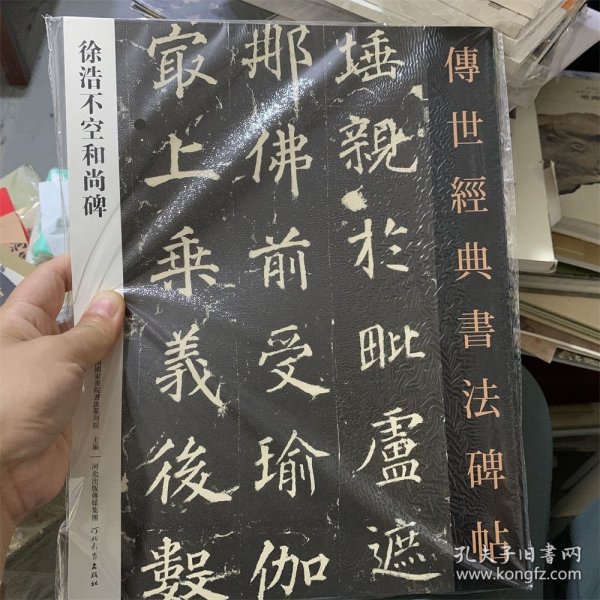 傳世經典書法碑帖
埵親於毗盧遮
那佛前受瑜伽
寂上乘義後數
徐浩不空和尚碑
國家畫院書法篆刻院 主編
河北出版傳媒集團
河北教育出版社
孔夫子旧书网
www.kongfz.com